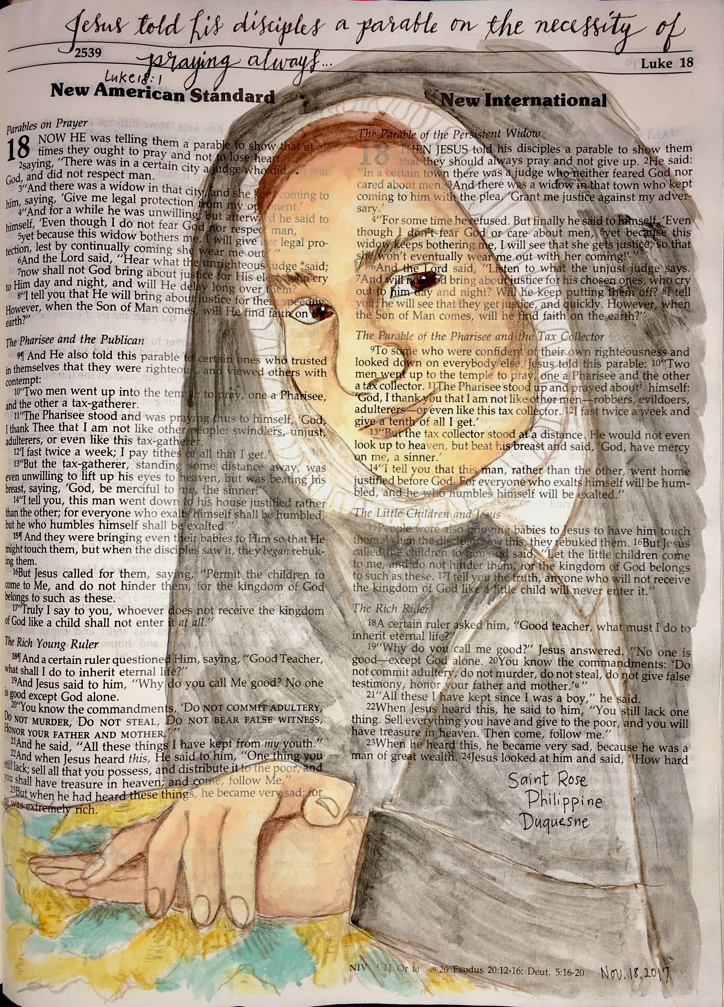 Jesus told his disciples a parable on the necessity of
2539
Luke 18
praying always...
Luke 18:1
New American Standard
Parables on Prayer
18 NOW HE was telling them a parable to show that at
times they ought to pray and not to lose heart,
2saying, "There was in a certain city a judge who did not fear
God, and did not respect man.
3"And there was a widow in that city, and she kept coming to
him, saying, 'Give me legal protection from my opponent.'
4"And for a while he was unwilling; but afterward he said to
himself, 'Even though I do not fear God nor respect man,
5yet because this widow bothers me, I will give her legal pro-
tection, lest by continually coming she wear me out.'"
6And the Lord said, "Hear what the unrighteous judge said;
7now shall not God bring about justice for His elect, who cry
to Him day and night, and will He delay long over them?
8"I tell you that He will bring about justice for them speedily.
However, when the Son of Man comes, will He find faith on
earth?"
The Pharisee and the Publican
9¶ And He also told this parable to certain ones who trusted
in themselves that they were righteous, and viewed others with
contempt:
10"Two men went up into the temple to pray, one a Pharisee,
and the other a tax-gatherer.
11"The Pharisee stood and was praying thus to himself, 'God,
I thank Thee that I am not like other people: swindlers, unjust,
adulterers, or even like this tax-gatherer.
12'I fast twice a week; I pay tithes of all that I get.'
13"But the tax-gatherer, standing some distance away, was
even unwilling to lift up his eyes to heaven, but was beating his
breast, saying, 'God, be merciful to me, the sinner!'
14"I tell you, this man went down to his house justified rather
than the other; for everyone who exalts himself shall be humbled,
but he who humbles himself shall be exalted."
15¶ And they were bringing even their babies to Him so that He
might touch them, but when the disciples saw it, they began rebuk-
ing them.
16But Jesus called for them, saying, "Permit the children to
come to Me, and do not hinder them, for the kingdom of God
belongs to such as these.
17"Truly I say to you, whoever does not receive the kingdom
of God like a child shall not enter it at all."
The Rich Young Ruler
18¶ And a certain ruler questioned Him, saying, "Good Teacher,
what shall I do to inherit eternal life?"
19And Jesus said to him, "Why do you call Me good? No one
is good except God alone.
20"You know the commandments, 'DO NOT COMMIT ADULTERY,
DO NOT MURDER, DO NOT STEAL, DO NOT BEAR FALSE WITNESS,
HONOR YOUR FATHER AND MOTHER.'"
21And he said, "All these things I have kept from my youth."
22And when Jesus heard this, He said to him, "One thing you
still lack; sell all that you possess, and distribute it to the poor, and
you shall have treasure in heaven; and come, follow Me."
23But when he had heard these things, he became very sad; for
he was extremely rich.
New International
The Parable of the Persistent Widow
18 THEN JESUS told his disciples a parable to show them
that they should always pray and not give up. 2He said:
"In a certain town there was a judge who neither feared God nor
cared about men. 3And there was a widow in that town who kept
coming to him with the plea, 'Grant me justice against my adver-
sary.'
4"For some time he refused. But finally he said to himself, 'Even
though I don't fear God or care about men, 5yet because this
widow keeps bothering me, I will see that she gets justice, so that
she won't eventually wear me out with her coming!'"
6And the Lord said, "Listen to what the unjust judge says.
7And will not God bring about justice for his chosen ones, who cry
out to him day and night? Will he keep putting them off? 8I tell
you, he will see that they get justice, and quickly. However, when
the Son of Man comes, will he find faith on the earth?"
The Parable of the Pharisee and the Tax Collector
9To some who were confident of their own righteousness and
looked down on everybody else, Jesus told this parable: 10"Two
men went up to the temple to pray, one a Pharisee and the other
a tax collector. 11The Pharisee stood up and prayed about himself:
'God, I thank you that I am not like other men—robbers, evildoers,
adulterers—or even like this tax collector. 12I fast twice a week and
give a tenth of all I get.'
13"But the tax collector stood at a distance. He would not even
look up to heaven, but beat his breast and said, 'God, have mercy
on me, a sinner.'
14"I tell you that this man, rather than the other, went home
justified before God. For everyone who exalts himself will be hum-
bled, and he who humbles himself will be exalted."
The Little Children and Jesus
15People were also bringing babies to Jesus to have him touch
them. When the disciples saw this, they rebuked them. 16But Jesus
called the children to him and said, "Let the little children come
to me, and do not hinder them, for the kingdom of God belongs
to such as these. 17I tell you the truth, anyone who will not receive
the kingdom of God like a little child will never enter it."
The Rich Ruler
18A certain ruler asked him, "Good teacher, what must I do to
inherit eternal life?"
19"Why do you call me good?" Jesus answered. "No one is
good—except God alone. 20You know the commandments: 'Do
not commit adultery, do not murder, do not steal, do not give false
testimony, honor your father and mother.'s"
21"All these I have kept since I was a boy," he said.
22When Jesus heard this, he said to him, "You still lack one
thing. Sell everything you have and give to the poor, and you will
have treasure in heaven. Then come, follow me."
23When he heard this, he became very sad, because he was a
man of great wealth. 24Jesus looked at him and said, "How hard
Saint Rose
Philippine
Duquesne
NIV Or 20 Exodus 20:12-16; Deut. 5:16-20
Nov. 18, 2017